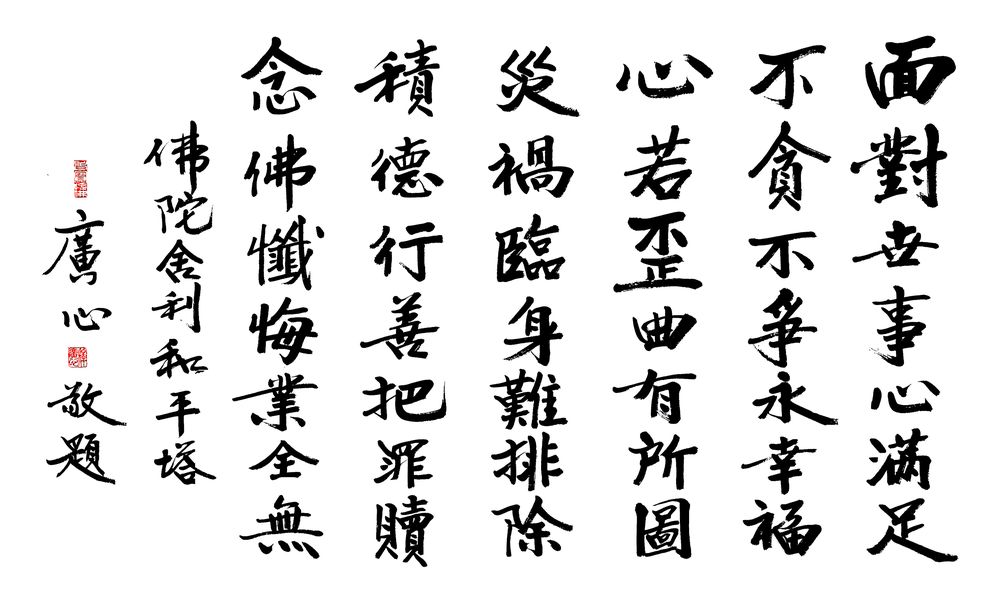 面對世事心滿足
不貪不爭永幸福
心若歪曲有所圖
災禍臨身難排除
積德行善把罪贖
念佛懺悔業全無
佛陀舍利和平塔
廣心敬題